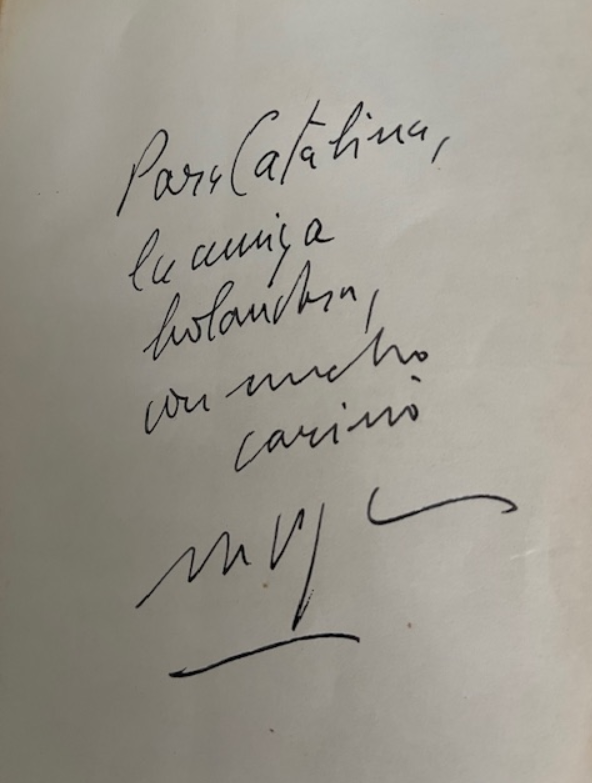 Para Catalina,
la amiga
holandesa,
con mucho
cariño